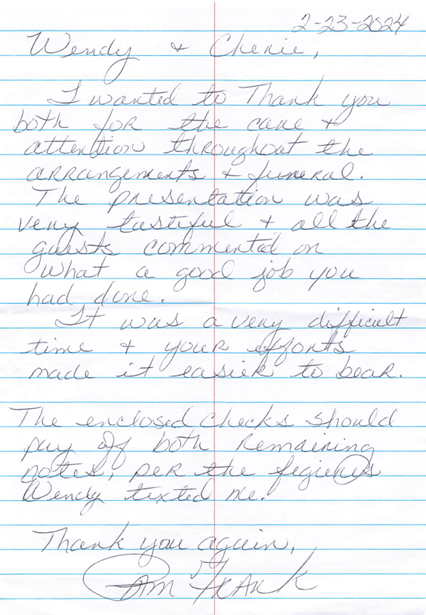 2-23-2024
Wendy & Cherie,
I wanted to Thank you
both for the care &
attenttion throughout the
arrangements & funeral.
The presentation was
very tasteful & all the
guests commented on
what a good job you
had done.
It was a very difficult
time & your efforts
made it easier to bear.
The enclosed checks should
pay off both remaining
notes, per the
Wendy texted me.
Thank you again,
Pam Frank